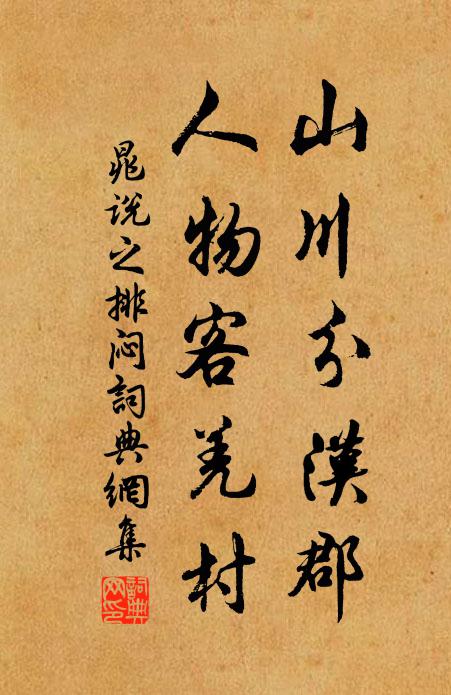 山川分漢郡
人物客羌村
晁說之排悶詞典網集
詞典網印